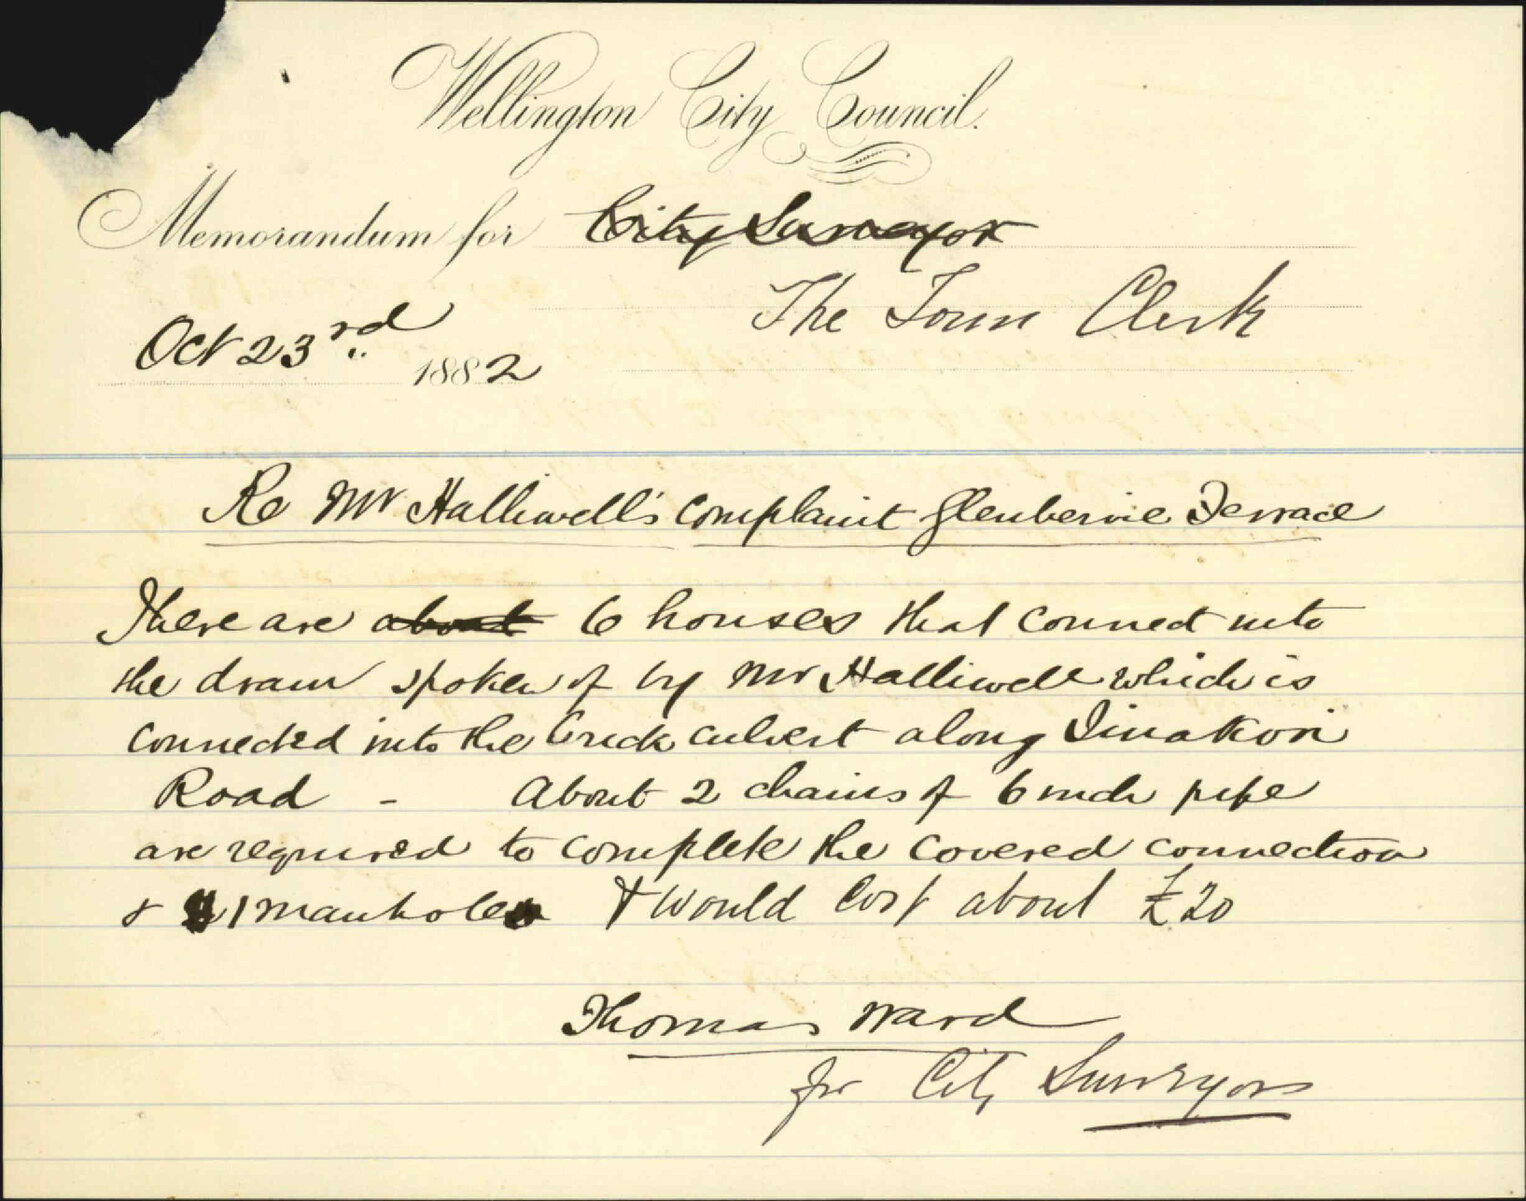 Wellington City Council.
Memorandum for City Surveyor
The Town Clerk
Oct 23rd 1882
Re Mr Halliwell's complaint Glenbervie Terrace
There are about 6 houses that connect into
the drain spoken of by Mr Halliwell which is
connected into the brick culvert along Tinakori
Road - About 2 chains of 6 inch pipe
are required to complete the covered connection
& 1 manhole & would cost about £20
Thomas Ward
for City Surveyor